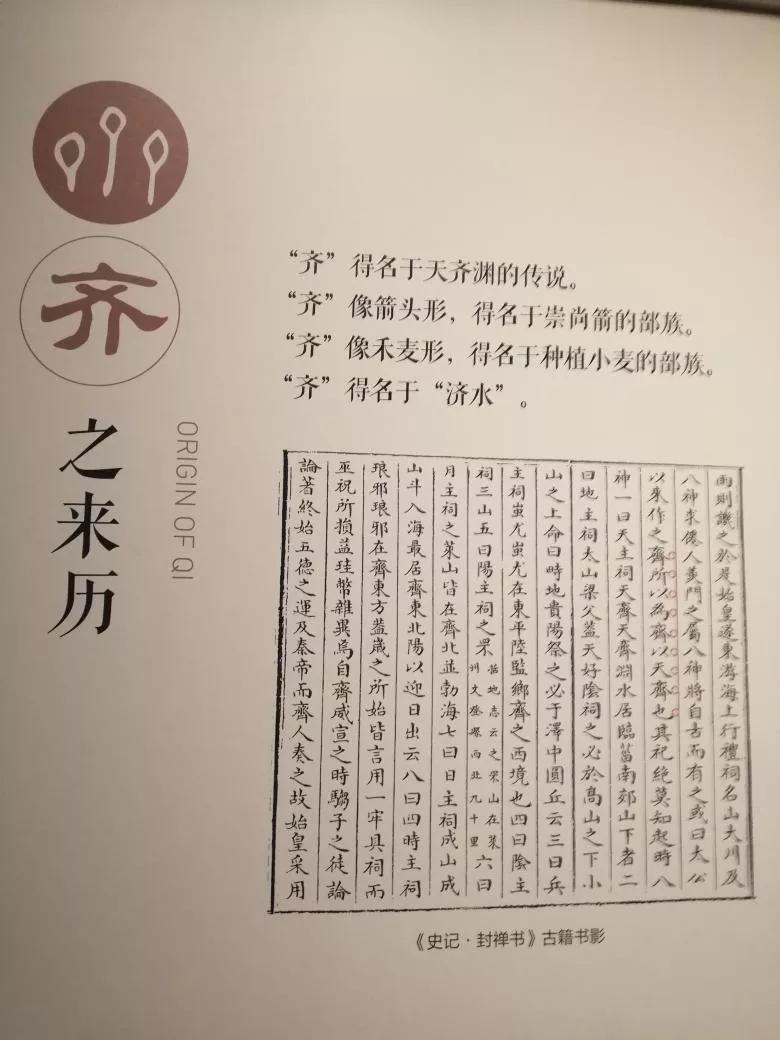 齐
之来历
ORIGIN OF QI
“齐”得名于天齐渊的传说。
“齐”像箭头形，得名于崇尚箭的部族。
“齐”像禾麦形，得名于种植小麦的部族。
“齐”得名于“济水”。
雨則議之於是始皇遂東游海上行禮祠名山大川及
八神求僊人羡門之屬八神將自古而有之或曰太公
以來作之齊所以為齊以天齊也其祀絕莫知起時八
神一曰天主祠天齊天齊淵水居臨菑南郊山下者二
曰地主祠太山梁父蓋天好陰祠之必於高山之下小
山之上命曰畤地貴陽祭之必于澤中圜丘云三曰兵
主祠蚩尤蚩尤在東平陸監鄉齊之西境也四曰陰主
祠三山五曰陽主祠之罘
括地志云之罘山在萊
州文登縣西北九十里
六曰
月主祠之萊山皆在齊北並勃海七曰日主祠成山成
山斗入海最居齊東北陽以迎日出云八曰四時主祠
琅邪琅邪在齊東方蓋歲之所始皆言用一牢具祠而
巫祝所損益珪幣雜異焉自齊威宣之時騶子之徒論
論著終始五德之運及秦帝而齊人奏之故始皇采用
《史记·封禅书》古籍书影